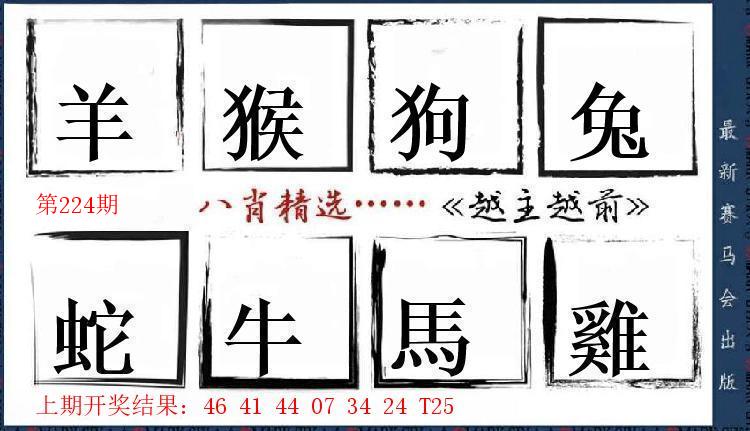 羊 猴 狗 兔
第224期 八肖精选……《越主越前》
蛇 牛 馬 雞
上期开奖结果：46 41 44 07 34 24 T25
最新赛马会出版